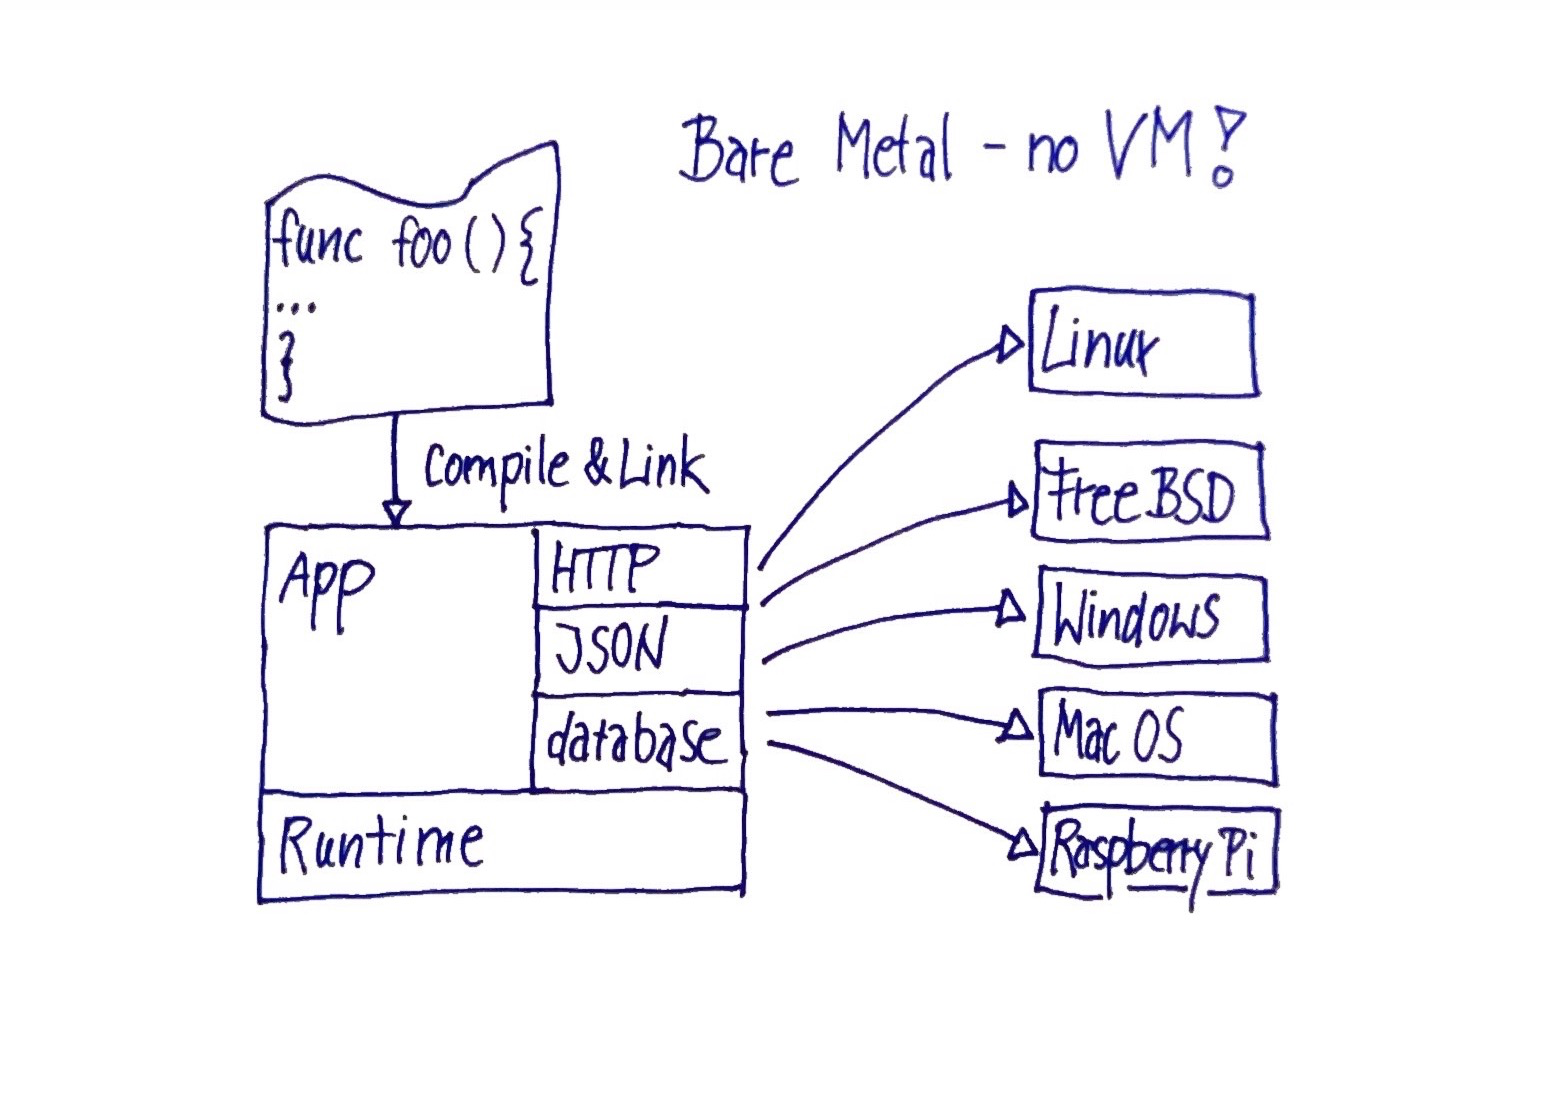 Bare Metal - no VM!
func foo(){
...
}
Compile & Link
App
HTTP
JSON
database
Runtime
Linux
FreeBSD
Windows
Mac OS
Raspberry Pi